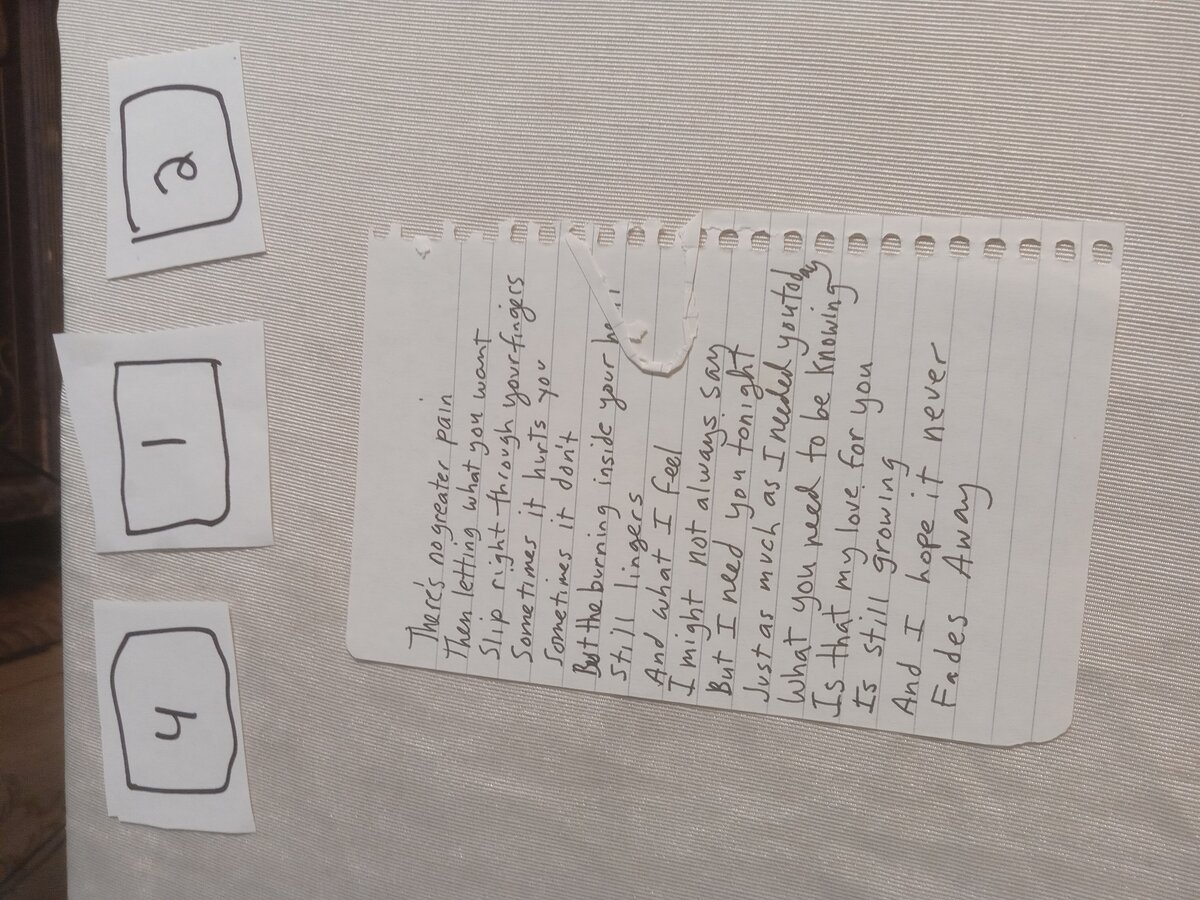 4 1 2
There's no greater pain
Then letting what you want
Slip right through your fingers
Sometimes it hurts you
Sometimes it don't
But the burning inside your
Still lingers
And what I feel
I might not always say
But I need you tonight
Just as much as I needed you today
What you need to be knowing
Is that my love for you
Is still growing
And I hope it never
Fades Away